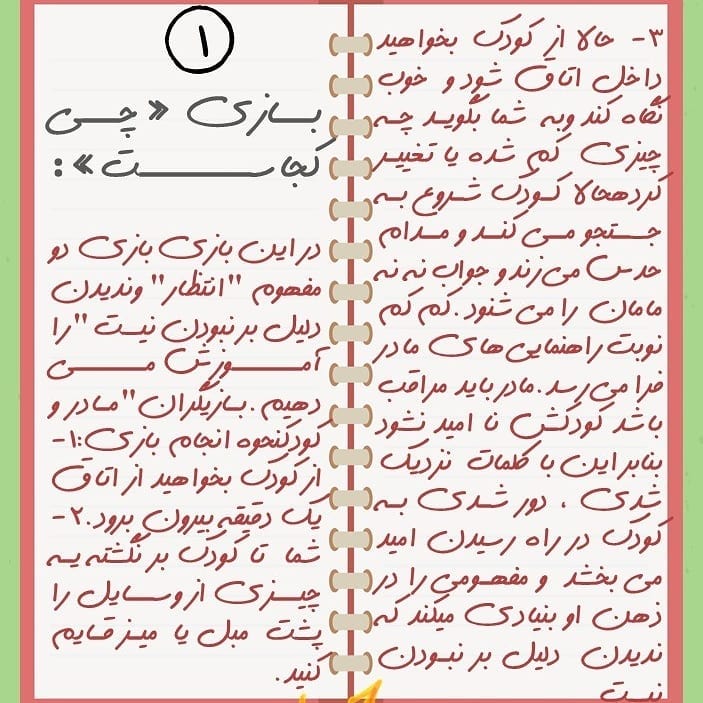 ۱
بازی «چی
کجاست»:
در این بازی بازی دو
مفهوم "انتظار" وندیدن
دلیل بر نبودن نیست "را
آموزش می
دهیم. بازیگران "مادر و
کودکنحوه انجام بازی:۱-
از کودک بخواهید از اتاق
یک دقیقه بیرون برود.۲-
شما تا کودک بر نگشته یه
چیزی از وسایل را
پشت مبل یا میز قایم
کنید.
۳- حالا از کودک بخواهید
داخل اتاق شود و خوب
نگاه کند وبه شما بگوید چه
چیزی کم شده یا تغییر
کردهحالا کودک شروع به
جستجو می کند و مدام
حدس می زند و جواب نه نه
مامان را می شنود .کم کم
نوبت راهنمایی های مادر
فرا می رسد .مادر باید مراقب
باشد کودکش نا امید نشود
بنابر این با کلمات نزدیک
شدی ، دور شدی به
کودک در راه رسیدن امید
می بخشد و مفهومی را در
ذهن او بنیادی میکند که
ندیدن دلیل بر نبودن
نیست